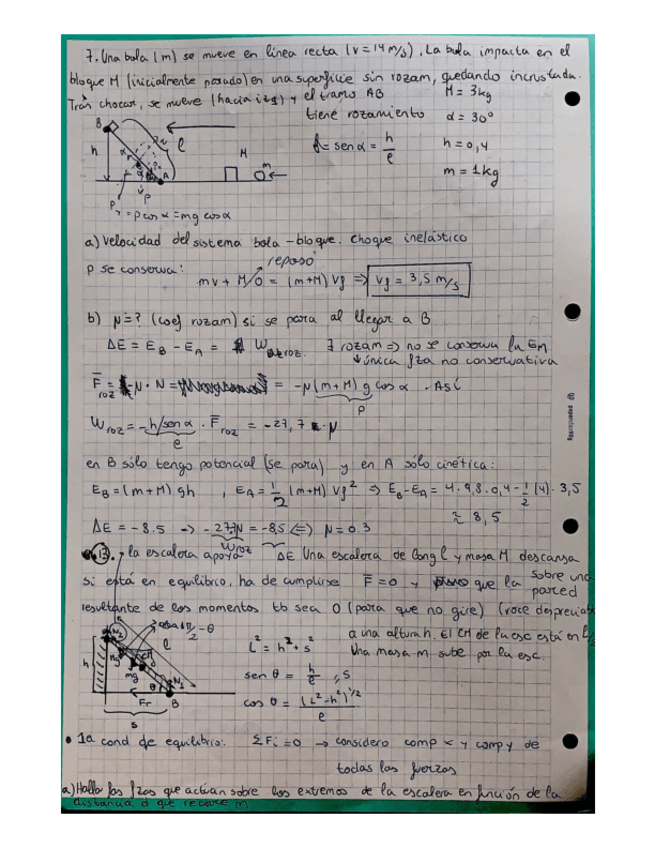 7. Una bola (m) se mueve en línea recta (v = 14 m/s). La bola impacta en el
bloque M (inicialmente parado) en una superficie sin rozam, quedando incrustada.
Trás chocar, se mueve (hacia izq) y el tramo AB
tiene rozamiento
M = 3kg
α = 30°
h = 0,4
m = 1kg
sen α = h/l
B
h
l
M
m
A
P
= p cos α = mg cos α
a) Velocidad del sistema bola - bloque. Choque inelástico
reposo
p se conserva: mv + M·0 = (m+M) Vf ⇒ Vf = 3,5 m/s
b) μ = ? (coef rozam) si se para al llegar a B
ΔE = E_B - E_A = W roz. ∃ rozam ⇒ no se conserva la Em
única fza no conservativa
F roz = -μ · N = -μ (m+M) g cos α . Así
P
W roz = -h/sen α · F roz = -27,7 · μ
l
en B sólo tengo potencial (se para) y en A sólo cinética:
E_B = (m+M) gh , E_A = 1/2 (m+M) Vf² ⇒ E_B - E_A = 4·9,8·0,4 - 1/2 (4) · 3,5
≈ 8,5
ΔE = -8.5 → -27.7μ = -8,5 ⇔ μ = 0.3
W roz ΔE
13. la escalera apoya Una escalera de long l y masa M descansa
sobre una pared
si está en equilibrio, ha de cumplirse F = 0 y que la
resultante de los momentos tb sea 0 (para que no gire) (roce despreciab
a una altura h. El CM de la esc está en L/2
Una masa m sube por la esc.
N2
π/2 - θ
l
h
Mg
mg
CM
θ
N1
Fr
B
s
L² = h² + s²
sen θ = h/l , s
cos θ = (L² - h²)^1/2 / l
• 1a cond de equilibrio: ΣFi = 0 → considero comp x y comp y de
todas las fuerzas
a) Halla las fzas que actúan sobre los extremos de la escalera en función de la
distancia d que recorre m